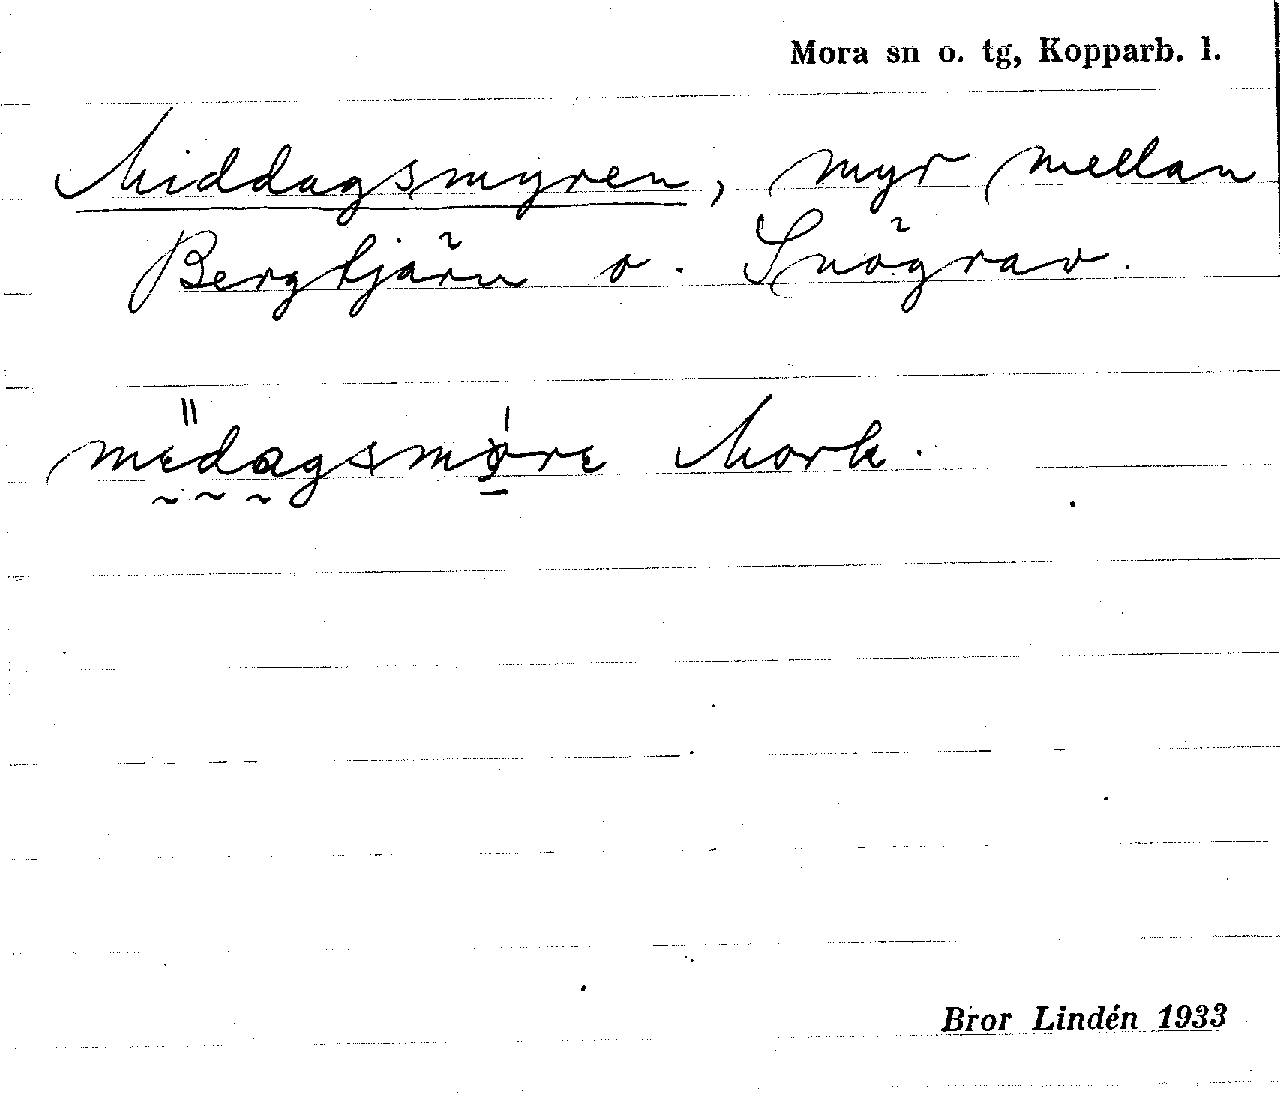 Mora sn o. tg, Kopparb. l.
Middagsmyren, myr mellan
Bergtjärn o. Snögrav.
Mork.
Bror Lindén 1933